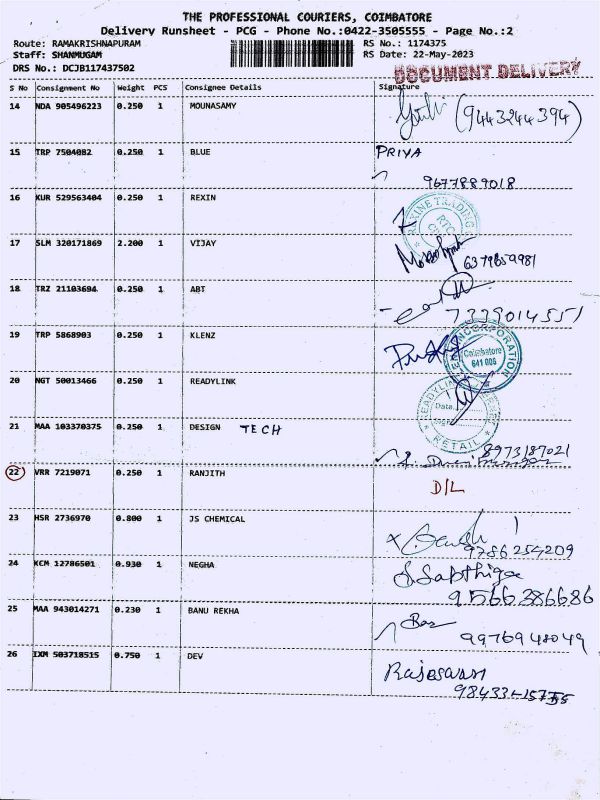 THE PROFESSIONAL COURIERS, COIMBATORE
Delivery Runsheet - PCG - Phone No.:0422-3505555 - Page No.:2
Route: RAMAKRISHNAPURAM RS No.: 1174375
Staff: SHANMUGAM RS Date: 22-May-2023
DRS No.: DCJB117437502
DOCUMENT DELIVERY
S No Consignment No Weight PCS Consignee Details Signature
14 NDA 905496223 0.250 1 MOUNASAMY (9443244394)
15 TRP 7504082 0.250 1 BLUE PRIYA
9677889018
16 KUR 529563404 0.250 1 REXIN
REXINE TRADING
17 SLM 320171869 2.200 1 VIJAY
6379859981
18 TRZ 21103694 0.250 1 ABT
7339014551
19 TRP 5868903 0.250 1 KLENZ
CORPORATION
Coimbatore
641 006
20 NGT 50013466 0.250 1 READYLINK
READYLINK
Date
RETAIL
21 MAA 103370375 0.250 1 DESIGN TECH
8973187021
22 VRR 7219071 0.250 1 RANJITH D/L
23 HSR 2736970 0.800 1 JS CHEMICAL
9786254209
24 KCM 12786501 0.930 1 NEGHA S Sapthiga
9566286686
25 MAA 943014271 0.230 1 BANU REKHA
9976948049
26 IXM 503718515 0.750 1 DEV Rajeswari